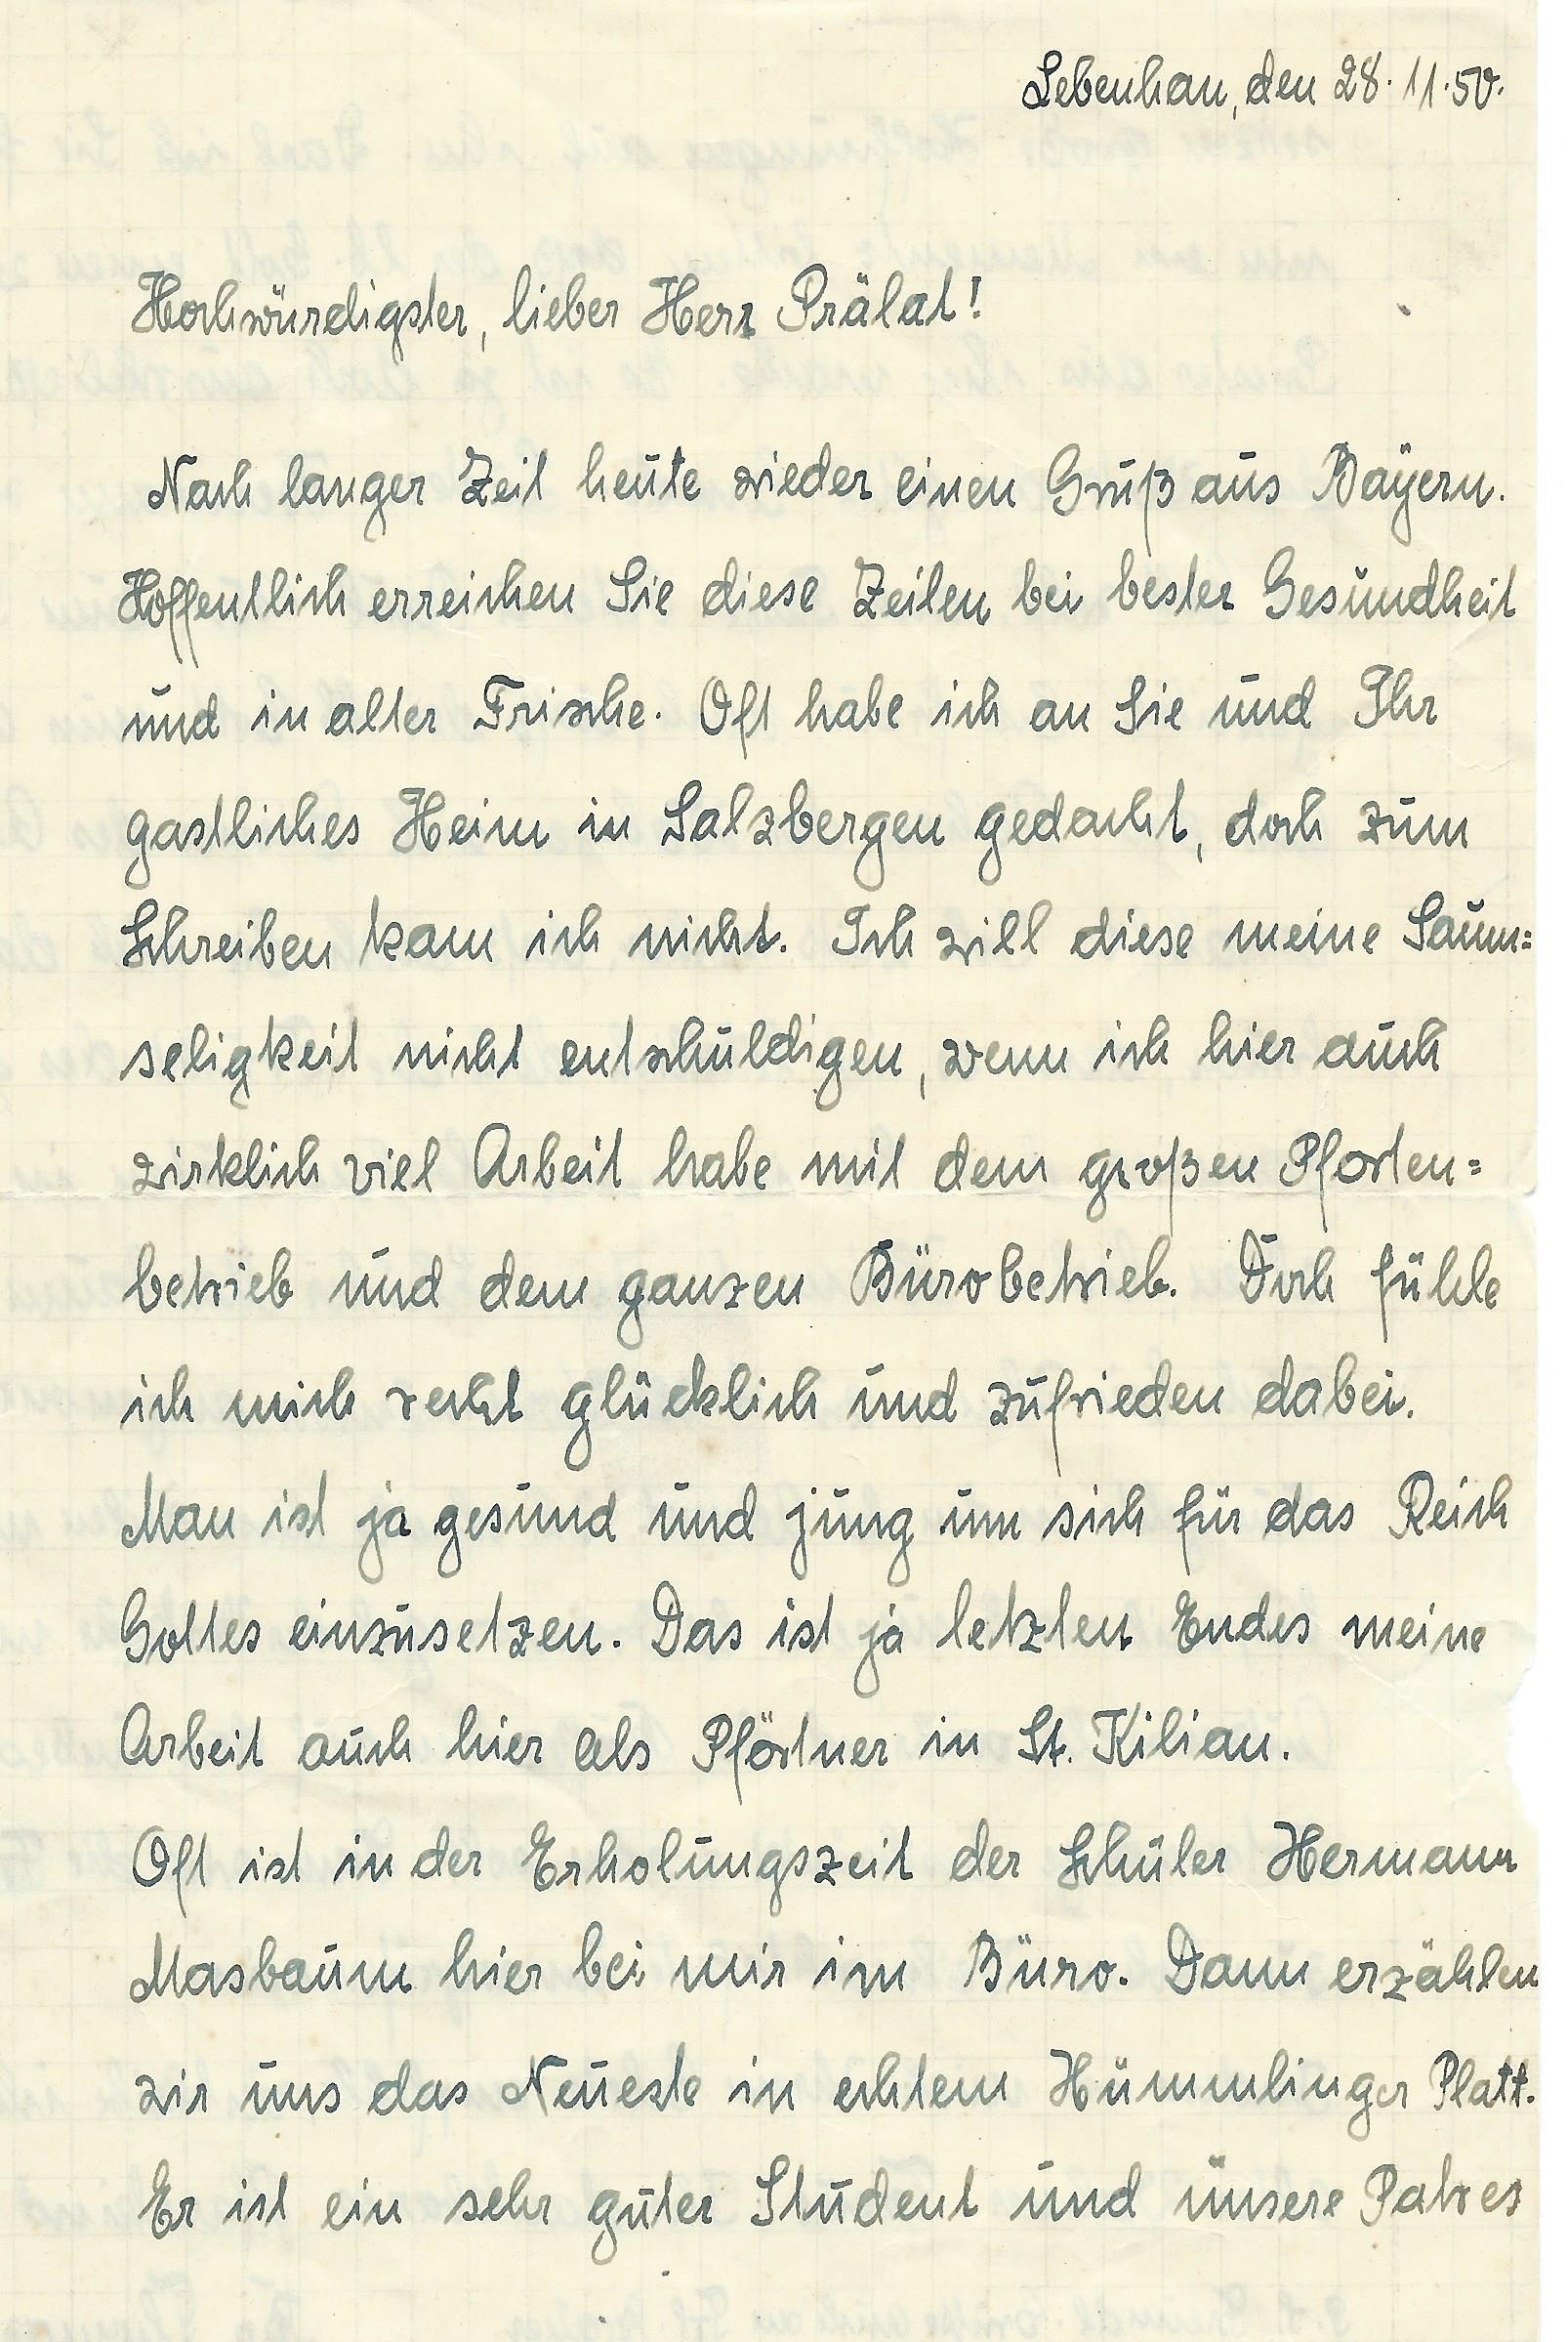 Lebenhan, den 28.11.50.
Hochwürdigster, lieber Herr Prälat!
Nach langer Zeit heute wieder einen Gruß aus Bayern.
Hoffentlich erreichen Sie diese Zeilen bei bester Gesundheit
und in alter Frische. Oft habe ich an Sie und Ihr
gastliches Heim in Salzbergen gedacht, doch zum
Schreiben kam ich nicht. Ich will diese meine Saum=
seligkeit nicht entschuldigen, wenn ich hier auch
wirklich viel Arbeit habe mit dem großen Pforten=
betrieb und dem ganzen Bürobetrieb. Doch fühle
ich mich recht glücklich und zufrieden dabei.
Man ist ja gesund und jung um sich für das Reich
Gottes einzusetzen. Das ist ja letzten Endes meine
Arbeit auch hier als Pförtner in St. Kilian.
Oft ist in der Erholungszeit der Schüler Hermann
Masbaum hier bei mir im Büro. Dann erzählen
wir uns das Neueste in echtem Hümmlinger Platt.
Er ist ein sehr guter Student und unsere Patres